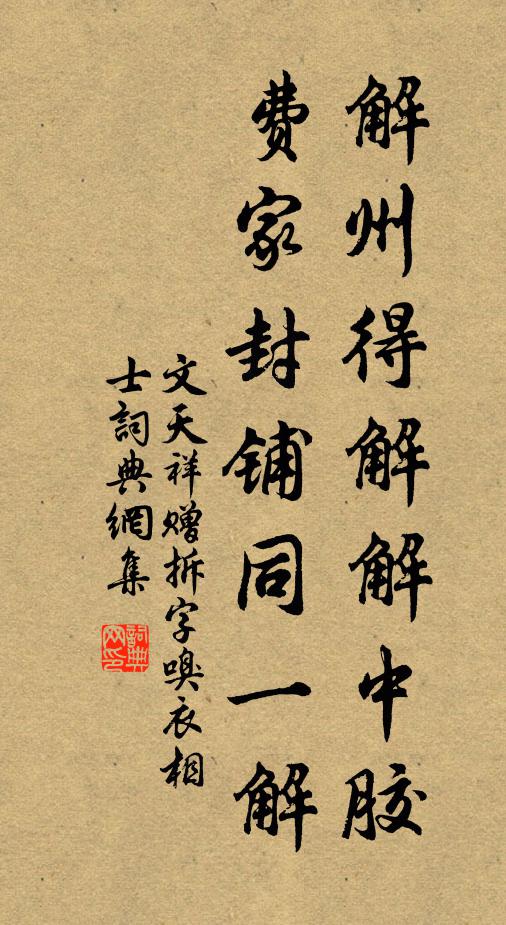 解州得解解中胶
费家封铺同一解
文天祥赠拆字嗅衣相
士詞典網集
詞典网印